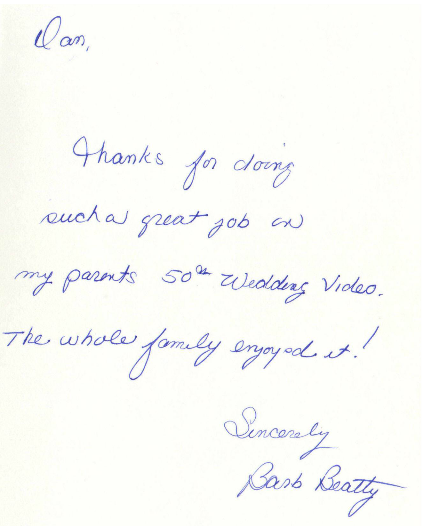 Dan,
Thanks for doing
such a great job on
my parents 50th Wedding Video.
The whole family enjoyed it!
Sincerely
Barb Beatty